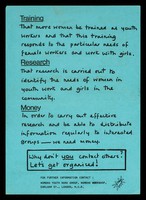 Training
That more women be trained as youth
workers and that this training
responds to the particular needs of
female workers and work with girls.
Research
That research is carried out to
identify the needs of women in
youth work and girls in the
community.
Money
In order to carry out effective
research and be able to distribute
information regularly to interested
groups — we need money.
Why don't you contact others?
Let's get organised!
FOR FURTHER INFORMATION CONTACT :